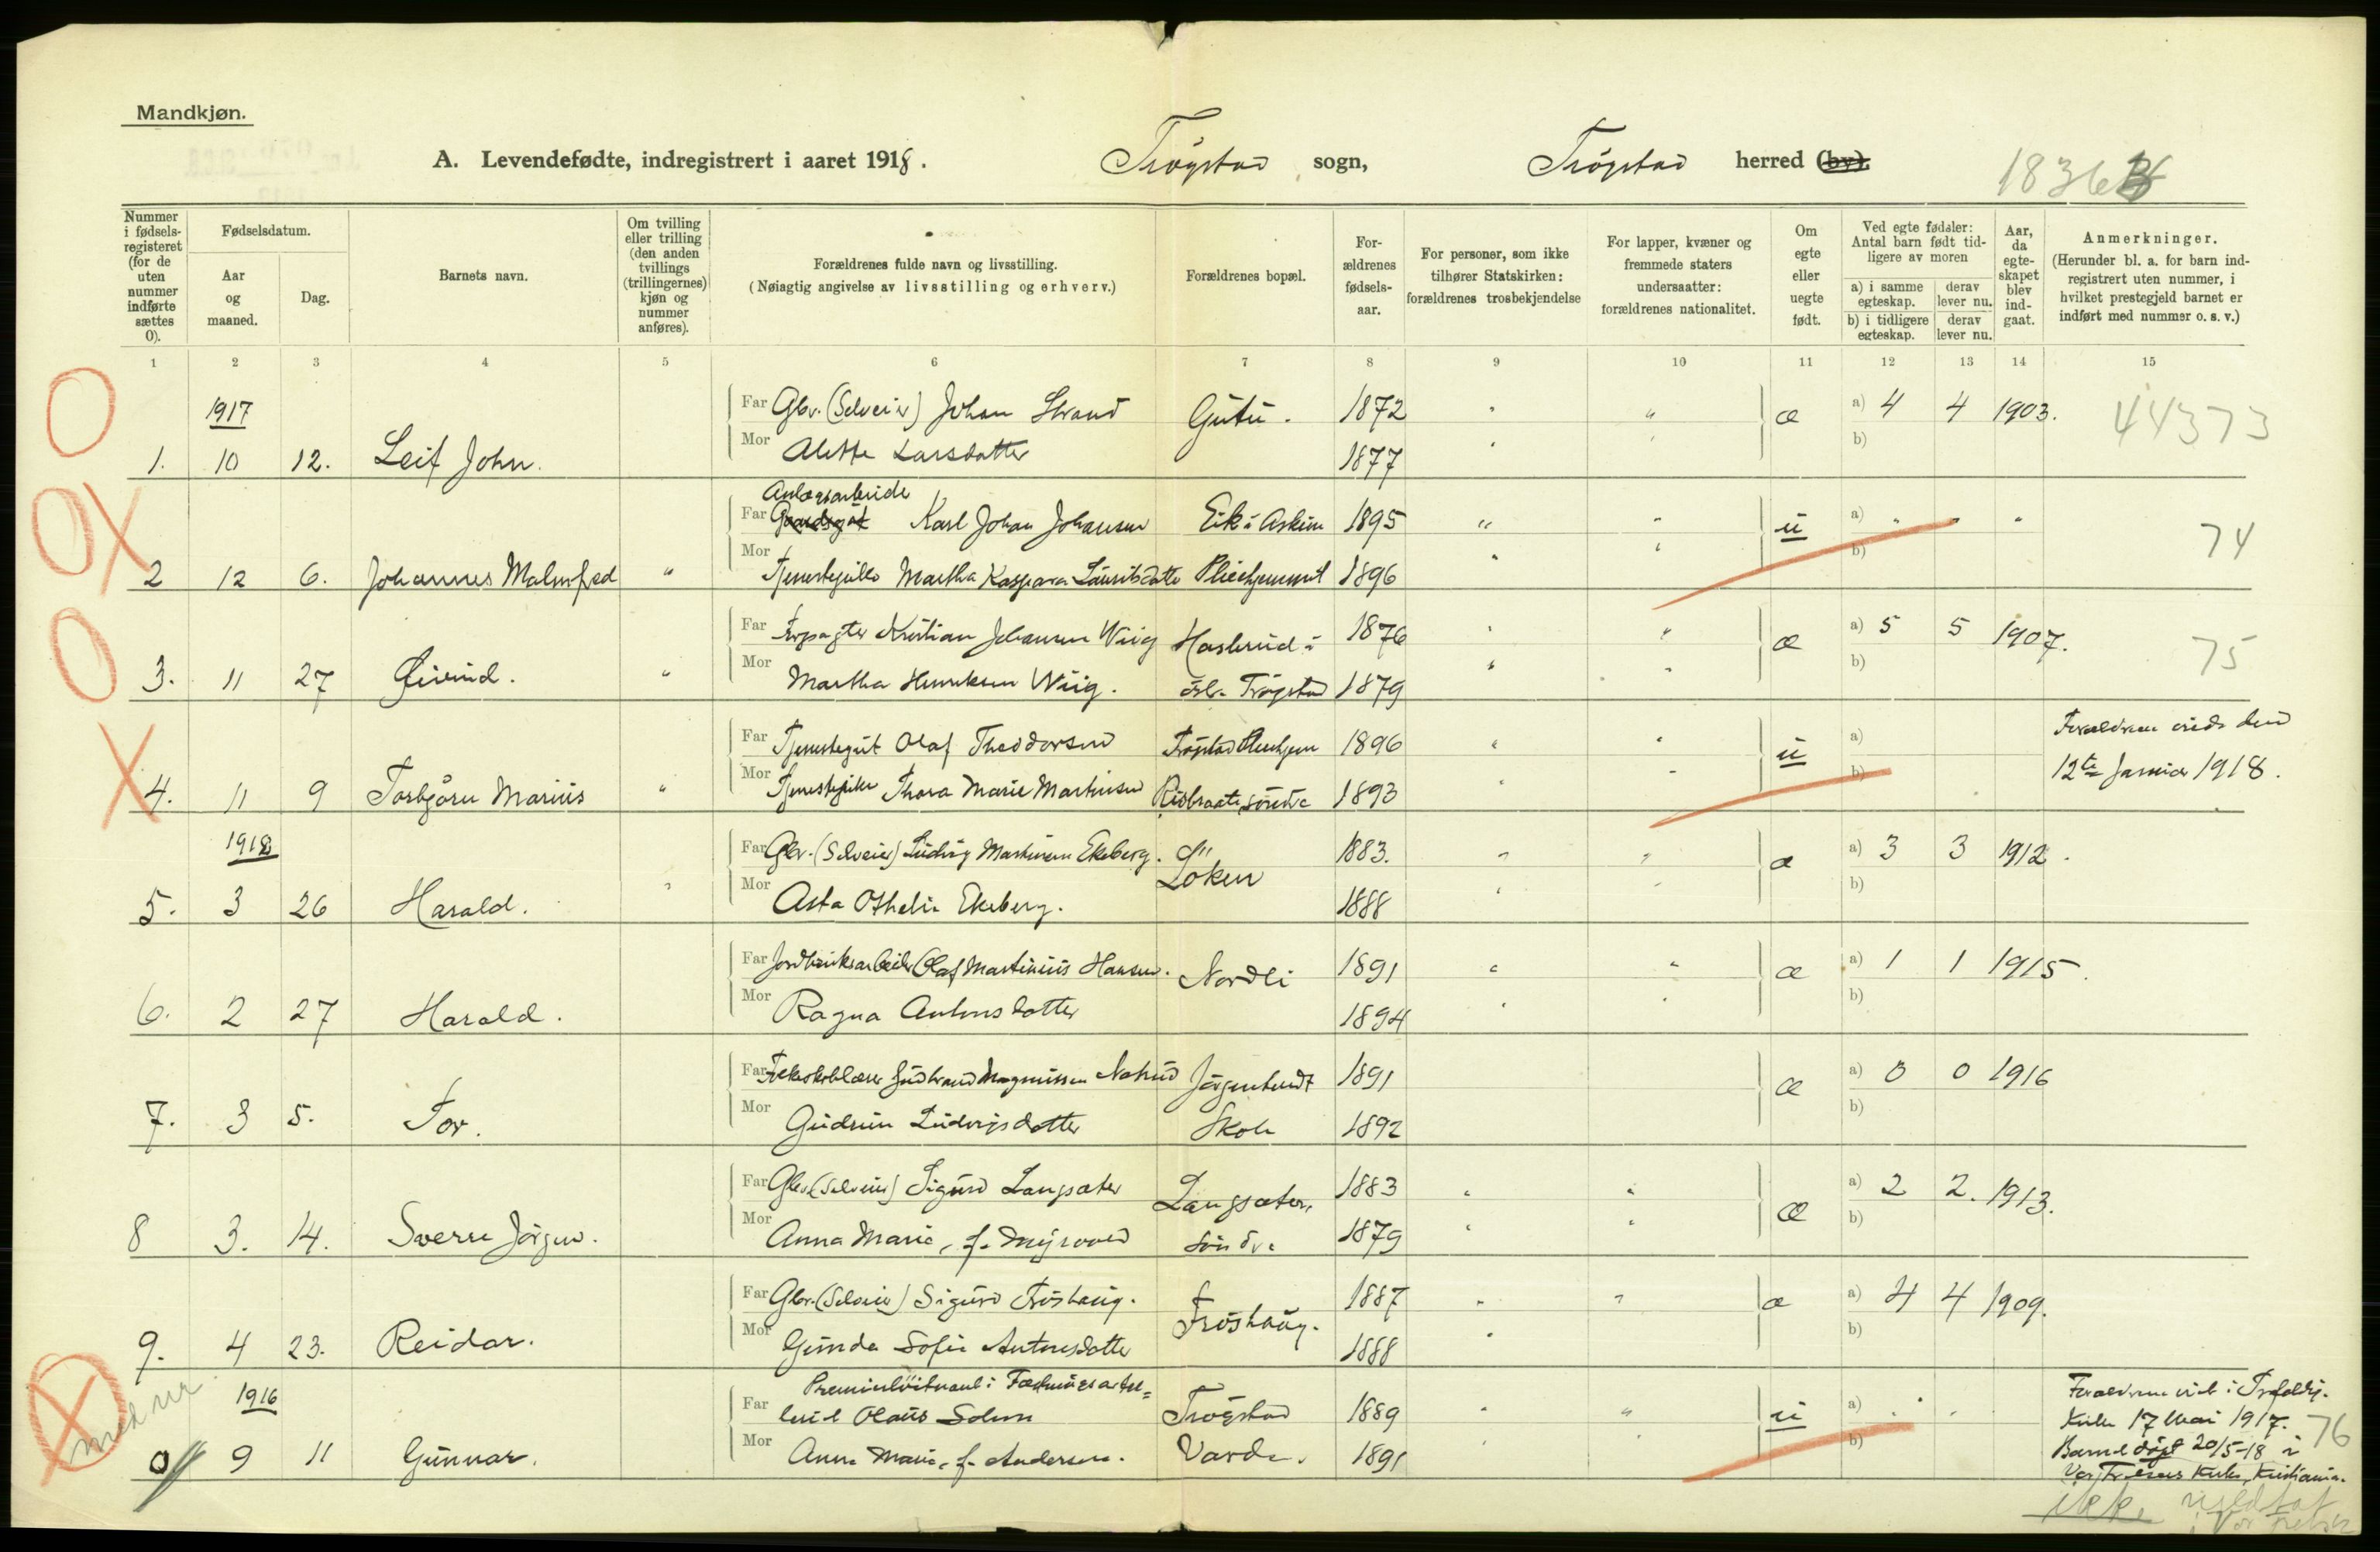 Mandkjøn.
A. Levendefødte, indregistrert i aaret 1918. Trøgstad sogn, Trøgstad herred (by).
1836
Nummer i fødselsregisteret (for de uten nummer indførte sættes 0).
Fødselsdatum.
Aar og maaned.
Dag.
Barnets navn.
Om tvilling eller trilling (den anden tvillings (trillingernes) kjøn og nummer anføres).
Forældrenes fulde navn og livsstilling.
(Nøiagtig angivelse av livsstilling og erhverv.)
Forældrenes bopæl.
Forældrenes fødselsaar.
For personer, som ikke tilhører Statskirken: forældrenes trosbekjendelse
For lapper, kvæner og fremmede staters undersaatter: forældrenes nationalitet.
Om egte eller uegte født.
Ved egte fødsler: Antal barn født tidligere av moren
a) i samme egteskap. derav lever nu.
b) i tidligere egteskap. derav lever nu.
Aar, da egteskapet blev indgaat.
Anmerkninger.
(Herunder bl. a. for barn indregistrert uten nummer, i hvilket prestegjeld barnet er indført med nummer o. s. v.)
1 2 3 4 5 6 7 8 9 10 11 12 13 14 15
1917
Far Gbr. (Selveier) Johan Strand Gutu. 1872 " " æ a) 4 4 1903. 44373
1. 10 12. Leif John. Mor Alette Larsdatter 1877 " " b)
Anlægsarbeider
Far Gaardsgut Karl Johan Johansen Eik i Askim 1895 " " u a) " " " 74
2 12 6. Johannes Malmfred " Mor Tjenestepike Martha Kaspara Lauritsdatter Pleiehjemmet 1896 " " b)
Far Forpagter Kristian Johansen Wiig Haslerud i 1876 " " æ a) 5 5 1907. 75
3. 11 27 Øivind. " Mor Martha Henriksen Wiig. østr. Trøgstad 1879 " " b)
Far Tjenestegut Olaf Theodorsen Trøgstad Pleiehjem 1896 " " u a) Forældrene viede den
4. 11 9 Torbjørn Marius " Mor Tjenestepike Thora Marie Martinsen Risbraate, søndre 1893 " " b) 12te Januar 1918.
1918
Far Gbr. (Selveier) Ludvig Martinsen Ekeberg. Løken 1883. " " æ a) 3 3 1912.
5. 3 26 Harald. " Mor Asta Othelie Ekeberg. 1888 " " b)
Far Jordbruksarbeider Olaf Martinius Hansen. Nordli 1891 " " æ a) 1 1 1915.
6. 2 27 Harald. Mor Ragna Antonsdatter 1894 " " b)
Far Gudbrand Magnussen Jørgentvedt 1891 æ a) 0 0 1916
7. 3 5. Tor. Mor Gudrun Ludvigsdatter Skole 1892 b)
Far Gbr. (Selveier) Sigurd Langsæter Langsæter, 1883 " " æ a) 2 2. 1913.
8 3. 14. Sverre Jørgen. Mor Anna Marie, f. Myrvold søndre 1879 " " b)
Far Gbr. (Selveier) Sigurd Frøshaug. Frøshaug. 1887 " " æ a) 4 4 1909.
9. 4 23. Reidar. Mor Gunda Sofie Antonsdatter 1888 " b)
med nr.
1916 Premierløitnant i Fæstningsartil=
Far leriet Olaus Solum Trøgstad 1889 " " u a) " " Forældrene viet i
0 9 11 Gunnar. Mor Anna Marie, f. Andersen. Varde. 1891 " " b) Kirke 17 Mai 1917. 76
Barnet døpt 20/5-18 i
Vor Frelsers Kirke, Kristiania.
ikke